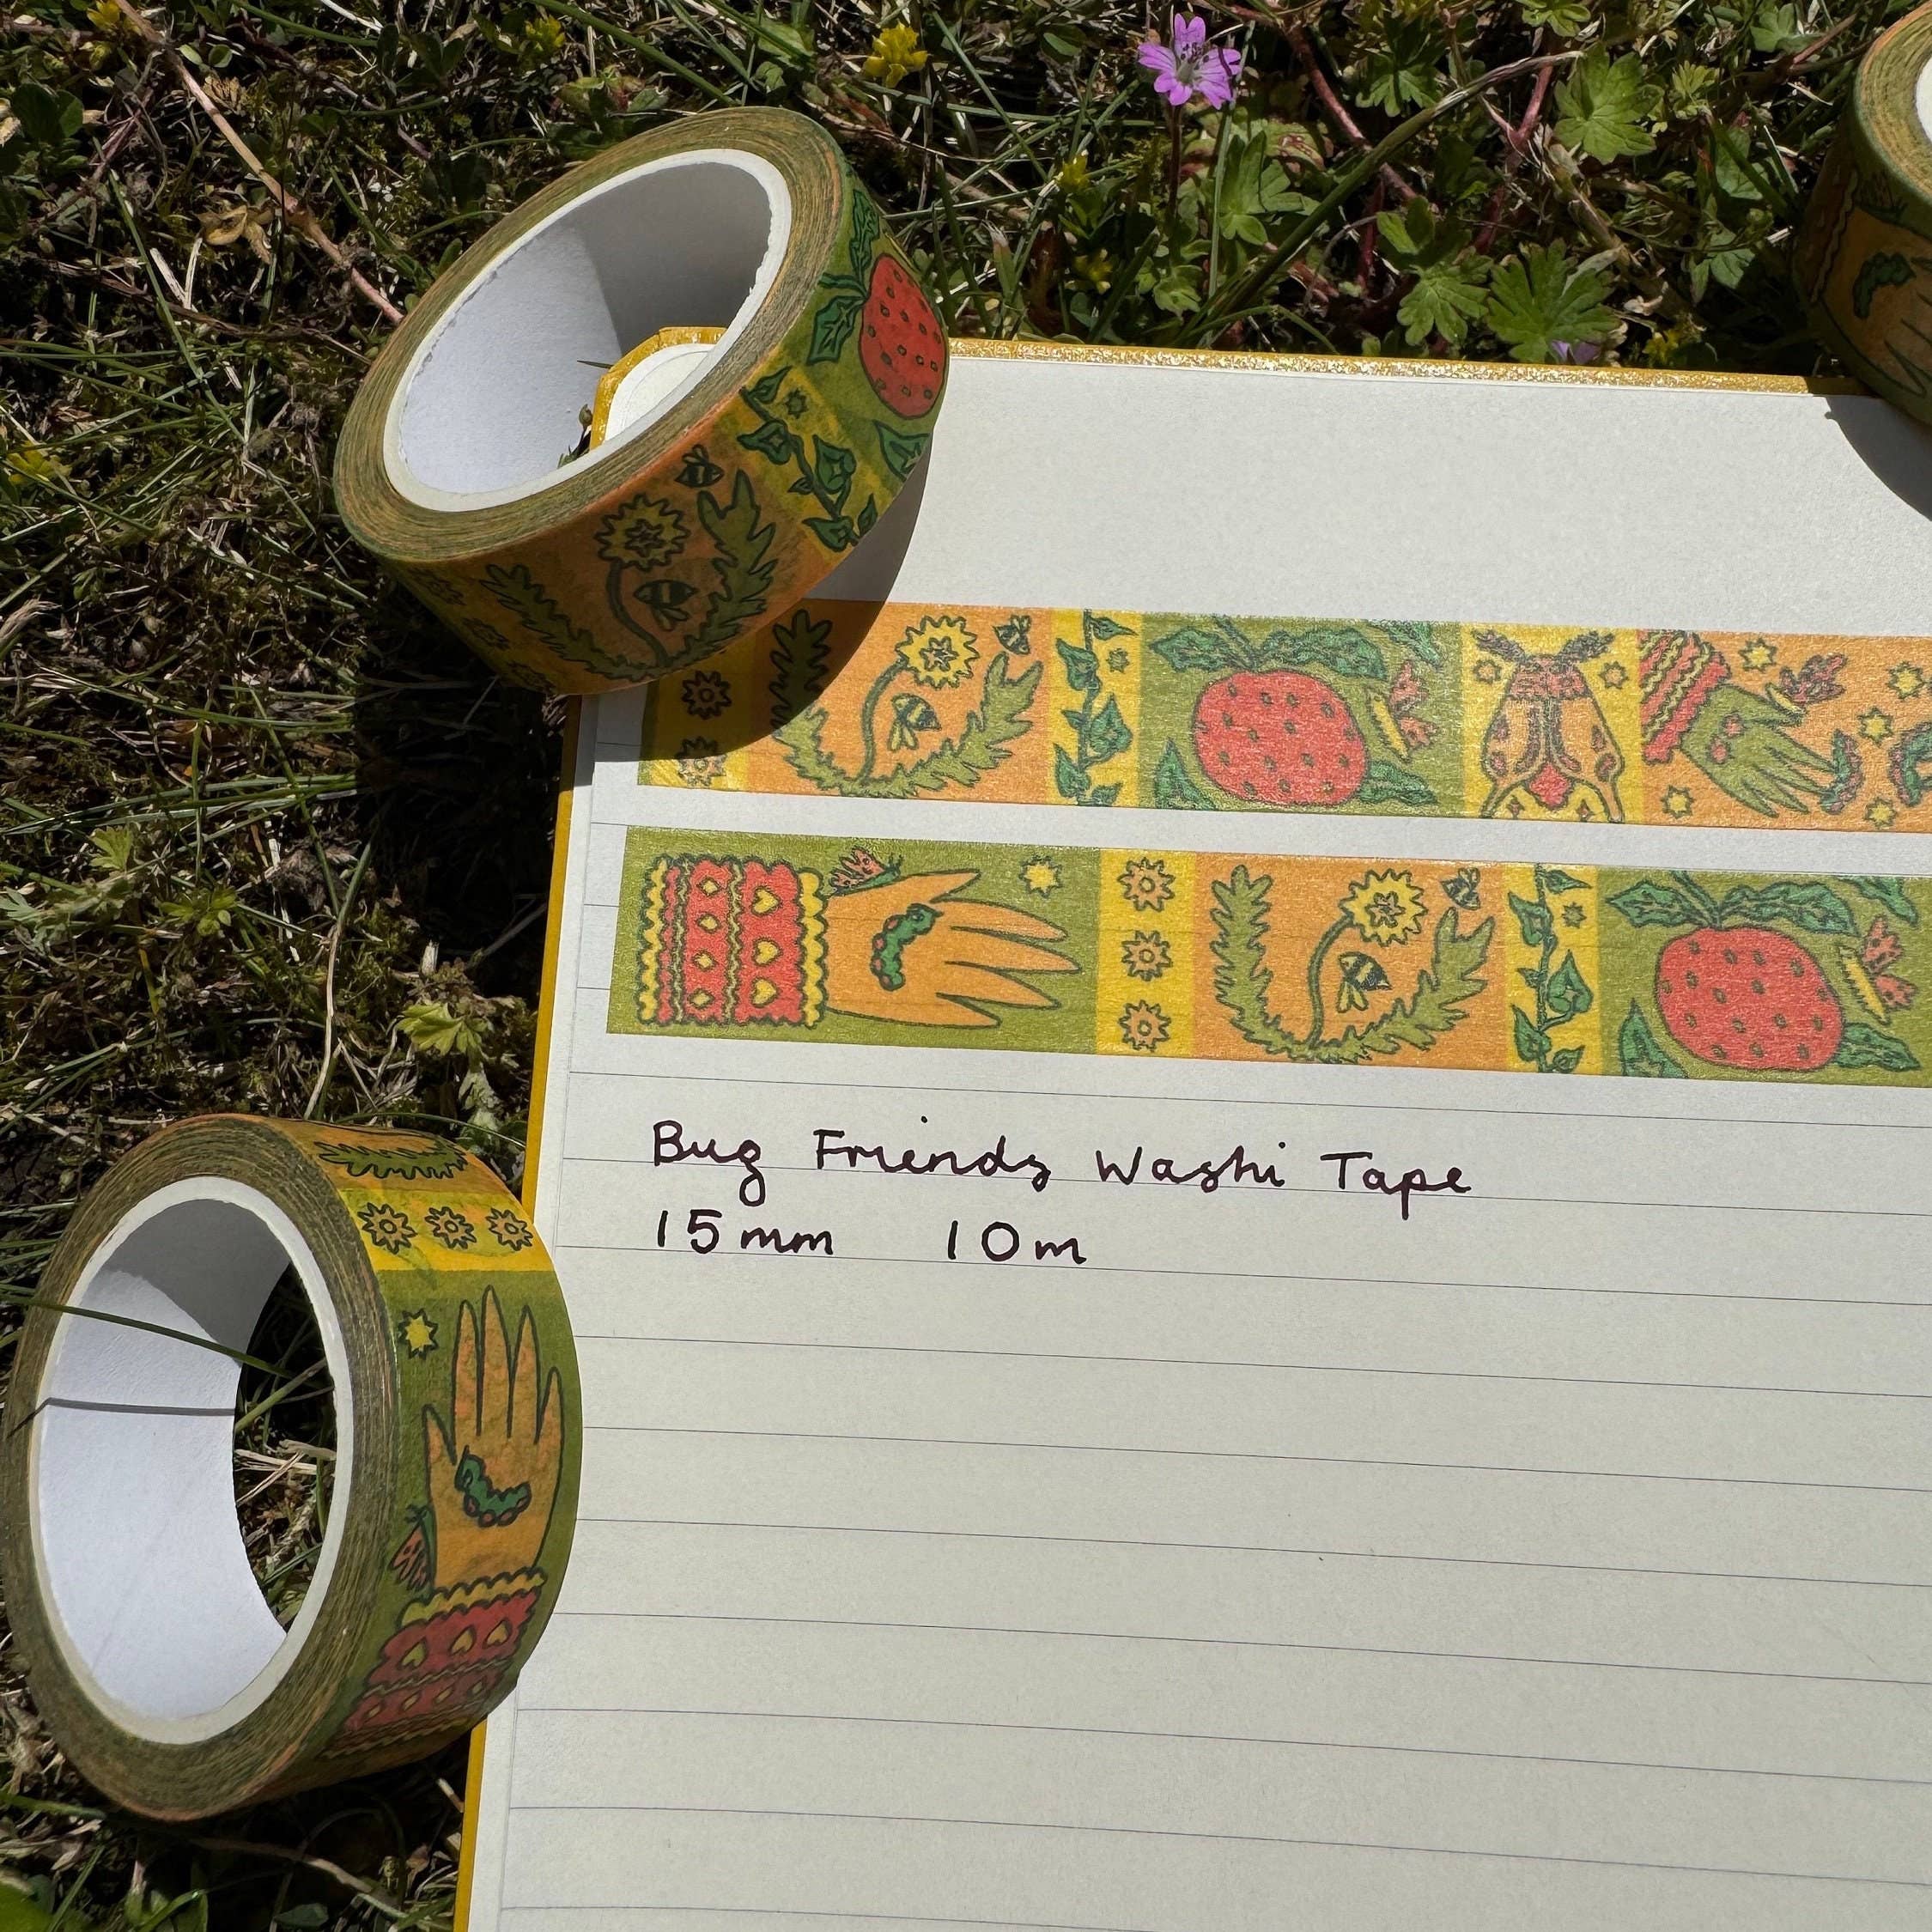 Bug Friends Washi Tape
15mm 10m